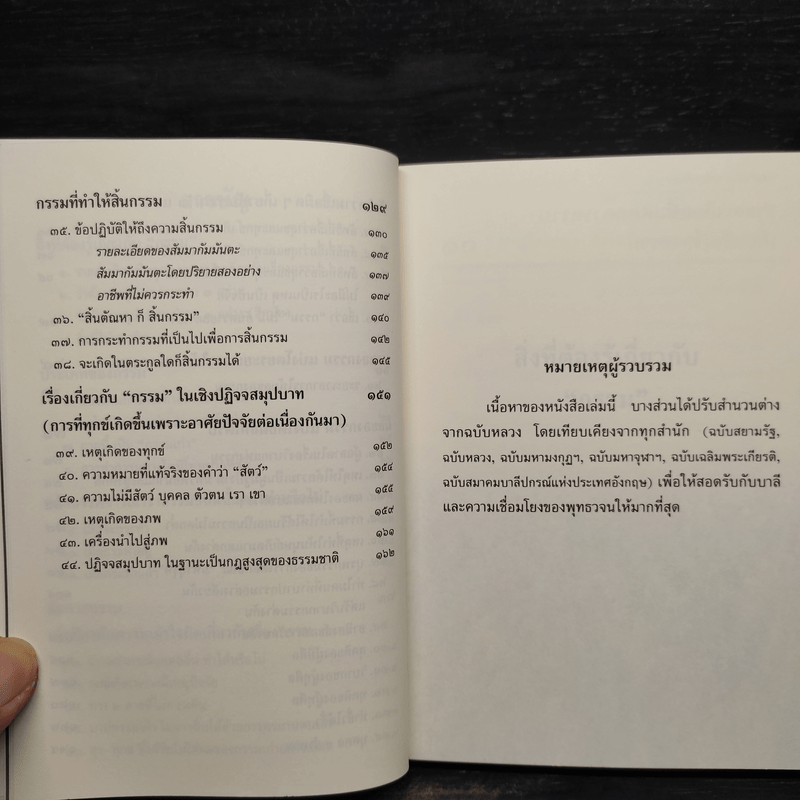 กรรมที่ทำให้สิ้นกรรม ๑๒๙
๓๕. ข้อปฏิบัติให้ถึงความสิ้นกรรม ๑๓๐
รายละเอียดของสัมมากัมมันตะ ๑๓๕
สัมมากัมมันตะโดยปริยายสองอย่าง ๑๓๗
อาชีพที่ไม่ควรกระทำ ๑๓๙
๓๖. “สิ้นตัณหา ก็ สิ้นกรรม” ๑๔๐
๓๗. การกระทำกรรมที่เป็นไปเพื่อการสิ้นกรรม ๑๔๒
๓๘. จะเกิดในตระกูลใดก็สิ้นกรรมได้ ๑๔๕
เรื่องเกี่ยวกับ “กรรม” ในเชิงปฏิจจสมุปบาท ๑๕๑
(การที่ทุกข์เกิดขึ้นเพราะอาศัยปัจจัยต่อเนื่องกันมา)
๓๙. เหตุเกิดของทุกข์ ๑๕๒
๔๐. ความหมายที่แท้จริงของคำว่า “สัตว์” ๑๕๔
๔๑. ความไม่มีสัตว์ บุคคล ตัวตน เรา เขา ๑๕๕
๔๒. เหตุเกิดของภพ ๑๕๙
๔๓. เครื่องนำไปสู่ภพ ๑๖๑
๔๔. ปฏิจจสมุปบาท ในฐานะเป็นกฎสูงสุดของธรรมชาติ ๑๖๒
หมายเหตุผู้รวบรวม
เนื้อหาของหนังสือเล่มนี้ บางส่วนได้ปรับสำนวนต่าง
จากฉบับหลวง โดยเทียบเคียงจากทุกสำนัก (ฉบับสยามรัฐ,
ฉบับหลวง, ฉบับมหามงกุฏฯ, ฉบับมหาจุฬาฯ, ฉบับเฉลิมพระเกียรติ,
ฉบับสมาคมบาลีปกรณ์แห่งประเทศอังกฤษ) เพื่อให้สอดรับกับบาลี
และความเชื่อมโยงของพุทธวจนให้มากที่สุด